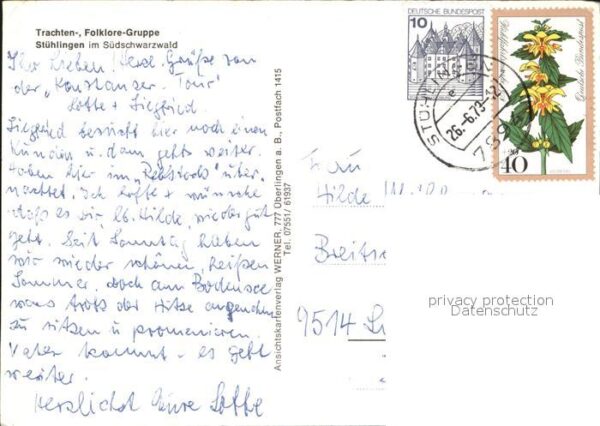 Trachten-, Folklore-Gruppe
Stühlingen im Südschwarzwald
Ihr Lieben! Herzl. Grüße von
der „Konstanzer Tour“
Lotte + Siegfried.
Siegfried besucht hier noch einen
Kunden u. dann gehts weiter.
haben hier im „Rebstock“ über-
nachtet. Ich hoffe + wünsche
daß es dir, lb. Hilde, wieder gut
geht. Seit Sonntag haben
wir wieder schönen, heißen
Sommer, doch am Bodensee
wars trotz der Hitze angenehm
zu sitzen u promenieren.
Vater kommt - es geht
weiter.
Herzlichst Eure Lotte
Ansichtskartenverlag WERNER, 777 Überlingen a. B., Postfach 1415
Tel. 07551/ 61937
10
DEUTSCHE BUNDESPOST
Deutsche Bundespost
40
STÜHLINGEN
26.-6.79-12
789
Frau
Hilde
9514
privacy protection
Datenschutz